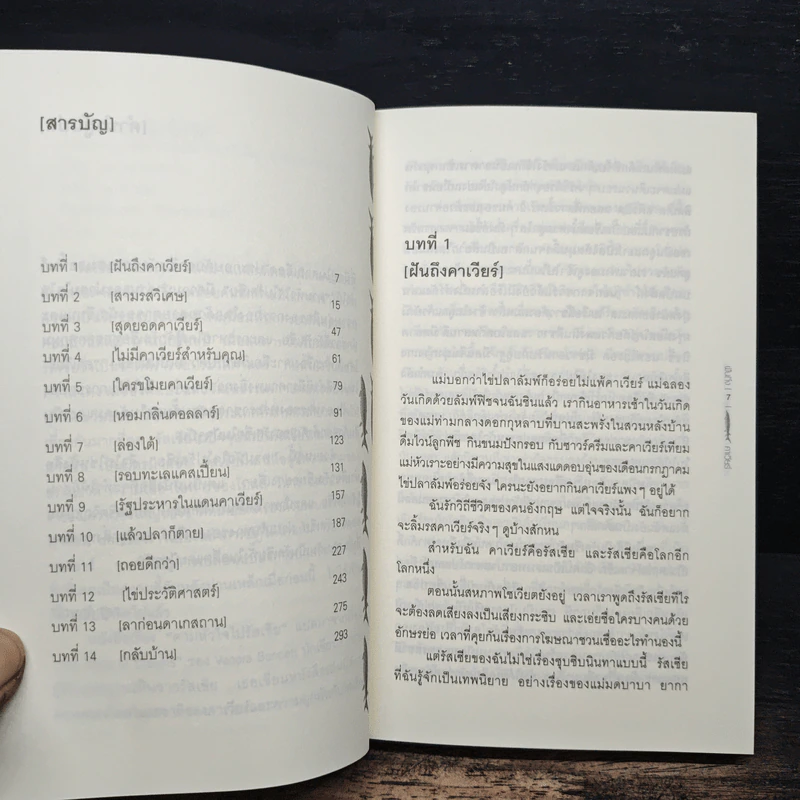 [สารบัญ]
บทที่ 1 [ฝันถึงคาเวียร์] 7
บทที่ 2 [สามรสวิเศษ] 15
บทที่ 3 [สุดยอดคาเวียร์] 47
บทที่ 4 [ไม่มีคาเวียร์สำหรับคุณ] 61
บทที่ 5 [ใครขโมยคาเวียร์] 79
บทที่ 6 [หอมกลิ่นดอลลาร์] 91
บทที่ 7 [ล่องใต้] 123
บทที่ 8 [รอบทะเลแคสเปี้ยน] 131
บทที่ 9 [รัฐประหารในแดนคาเวียร์] 157
บทที่ 10 [แล้วปลาก็ตาย] 187
บทที่ 11 [ถอยดีกว่า] 227
บทที่ 12 [ไข่ประวัติศาสตร์] 243
บทที่ 13 [ลาก่อนดาเกสถาน] 275
บทที่ 14 [กลับบ้าน] 293
บทที่ 1
[ฝันถึงคาเวียร์]
แม่บอกว่าไข่ปลาลัมพ์ก็อร่อยไม่แพ้คาเวียร์ แม่ฉลอง
วันเกิดด้วยลัมพ์ฟิชจนฉันชินแล้ว เรากินอาหารเช้าในวันเกิด
ของแม่ท่ามกลางดอกกุหลาบที่บานสะพรั่งในสวนหลังบ้าน
ดื่มไวน์ลูกพีช กินขนมปังกรอบ กับซาวร์ครีมและคาเวียร์เทียม
แม่หัวเราะอย่างมีความสุขในแสงแดดอบอุ่นของเดือนกรกฎาคม
ไข่ปลาลัมพ์อร่อยจัง ใครนะยังอยากกินคาเวียร์แพงๆ อยู่ได้
ฉันรักวิถีชีวิตของคนอังกฤษ แต่ใจจริงนั้น ฉันก็อยาก
จะลิ้มรสคาเวียร์จริงๆ ดูบ้างสักหน
สำหรับฉัน คาเวียร์คือรัสเซีย และรัสเซียคือโลกอีก
โลกหนึ่ง
ตอนนั้นสหภาพโซเวียตยังอยู่ เวลาเราพูดถึงรัสเซียทีไร
จะต้องลดเสียงลงเป็นเสียงกระซิบ และเอ่ยชื่อใครบางคนด้วย
อักษรย่อ เวลาที่คุยกันเรื่องการโฆษณาชวนเชื่ออะไรทำนองนี้
แต่รัสเซียของฉันไม่ใช่เรื่องซุบซิบนินทาแบบนี้ รัสเซีย
ที่ฉันรู้จักเป็นเทพนิยาย อย่างเรื่องของแม่มดบาบา ยากา
7